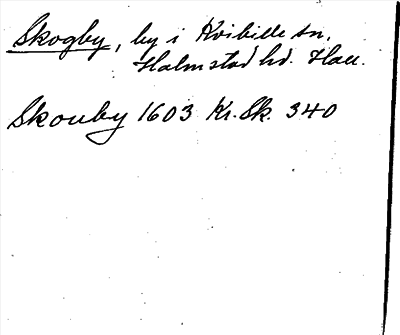 Skogby, by i Kvibille sn,
Halmstad hd. Hall.
Skouby 1603 Kr. Sk. 340